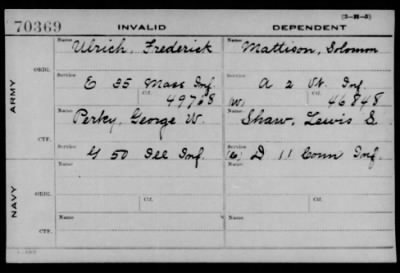 (3-H-3)
70369 INVALID DEPENDENT
ARMY
NAVY
ORIG.
CTF.
ORIG.
CTF.
Name Ulrich, Frederick
Service E 35 Mass Inf.
Ctf. 49768
Name Perky, George W.
Service G 50 Ill Inf.
Name
Service
Ctf.
Name
Service
Name Mattison, Solomon
Service A 2 Vt. Inf.
(W) Ctf. 46848
Name Shaw, Lewis S.
Service D 11 Conn Inf.
Name
Service
Ctf.
Name
Service